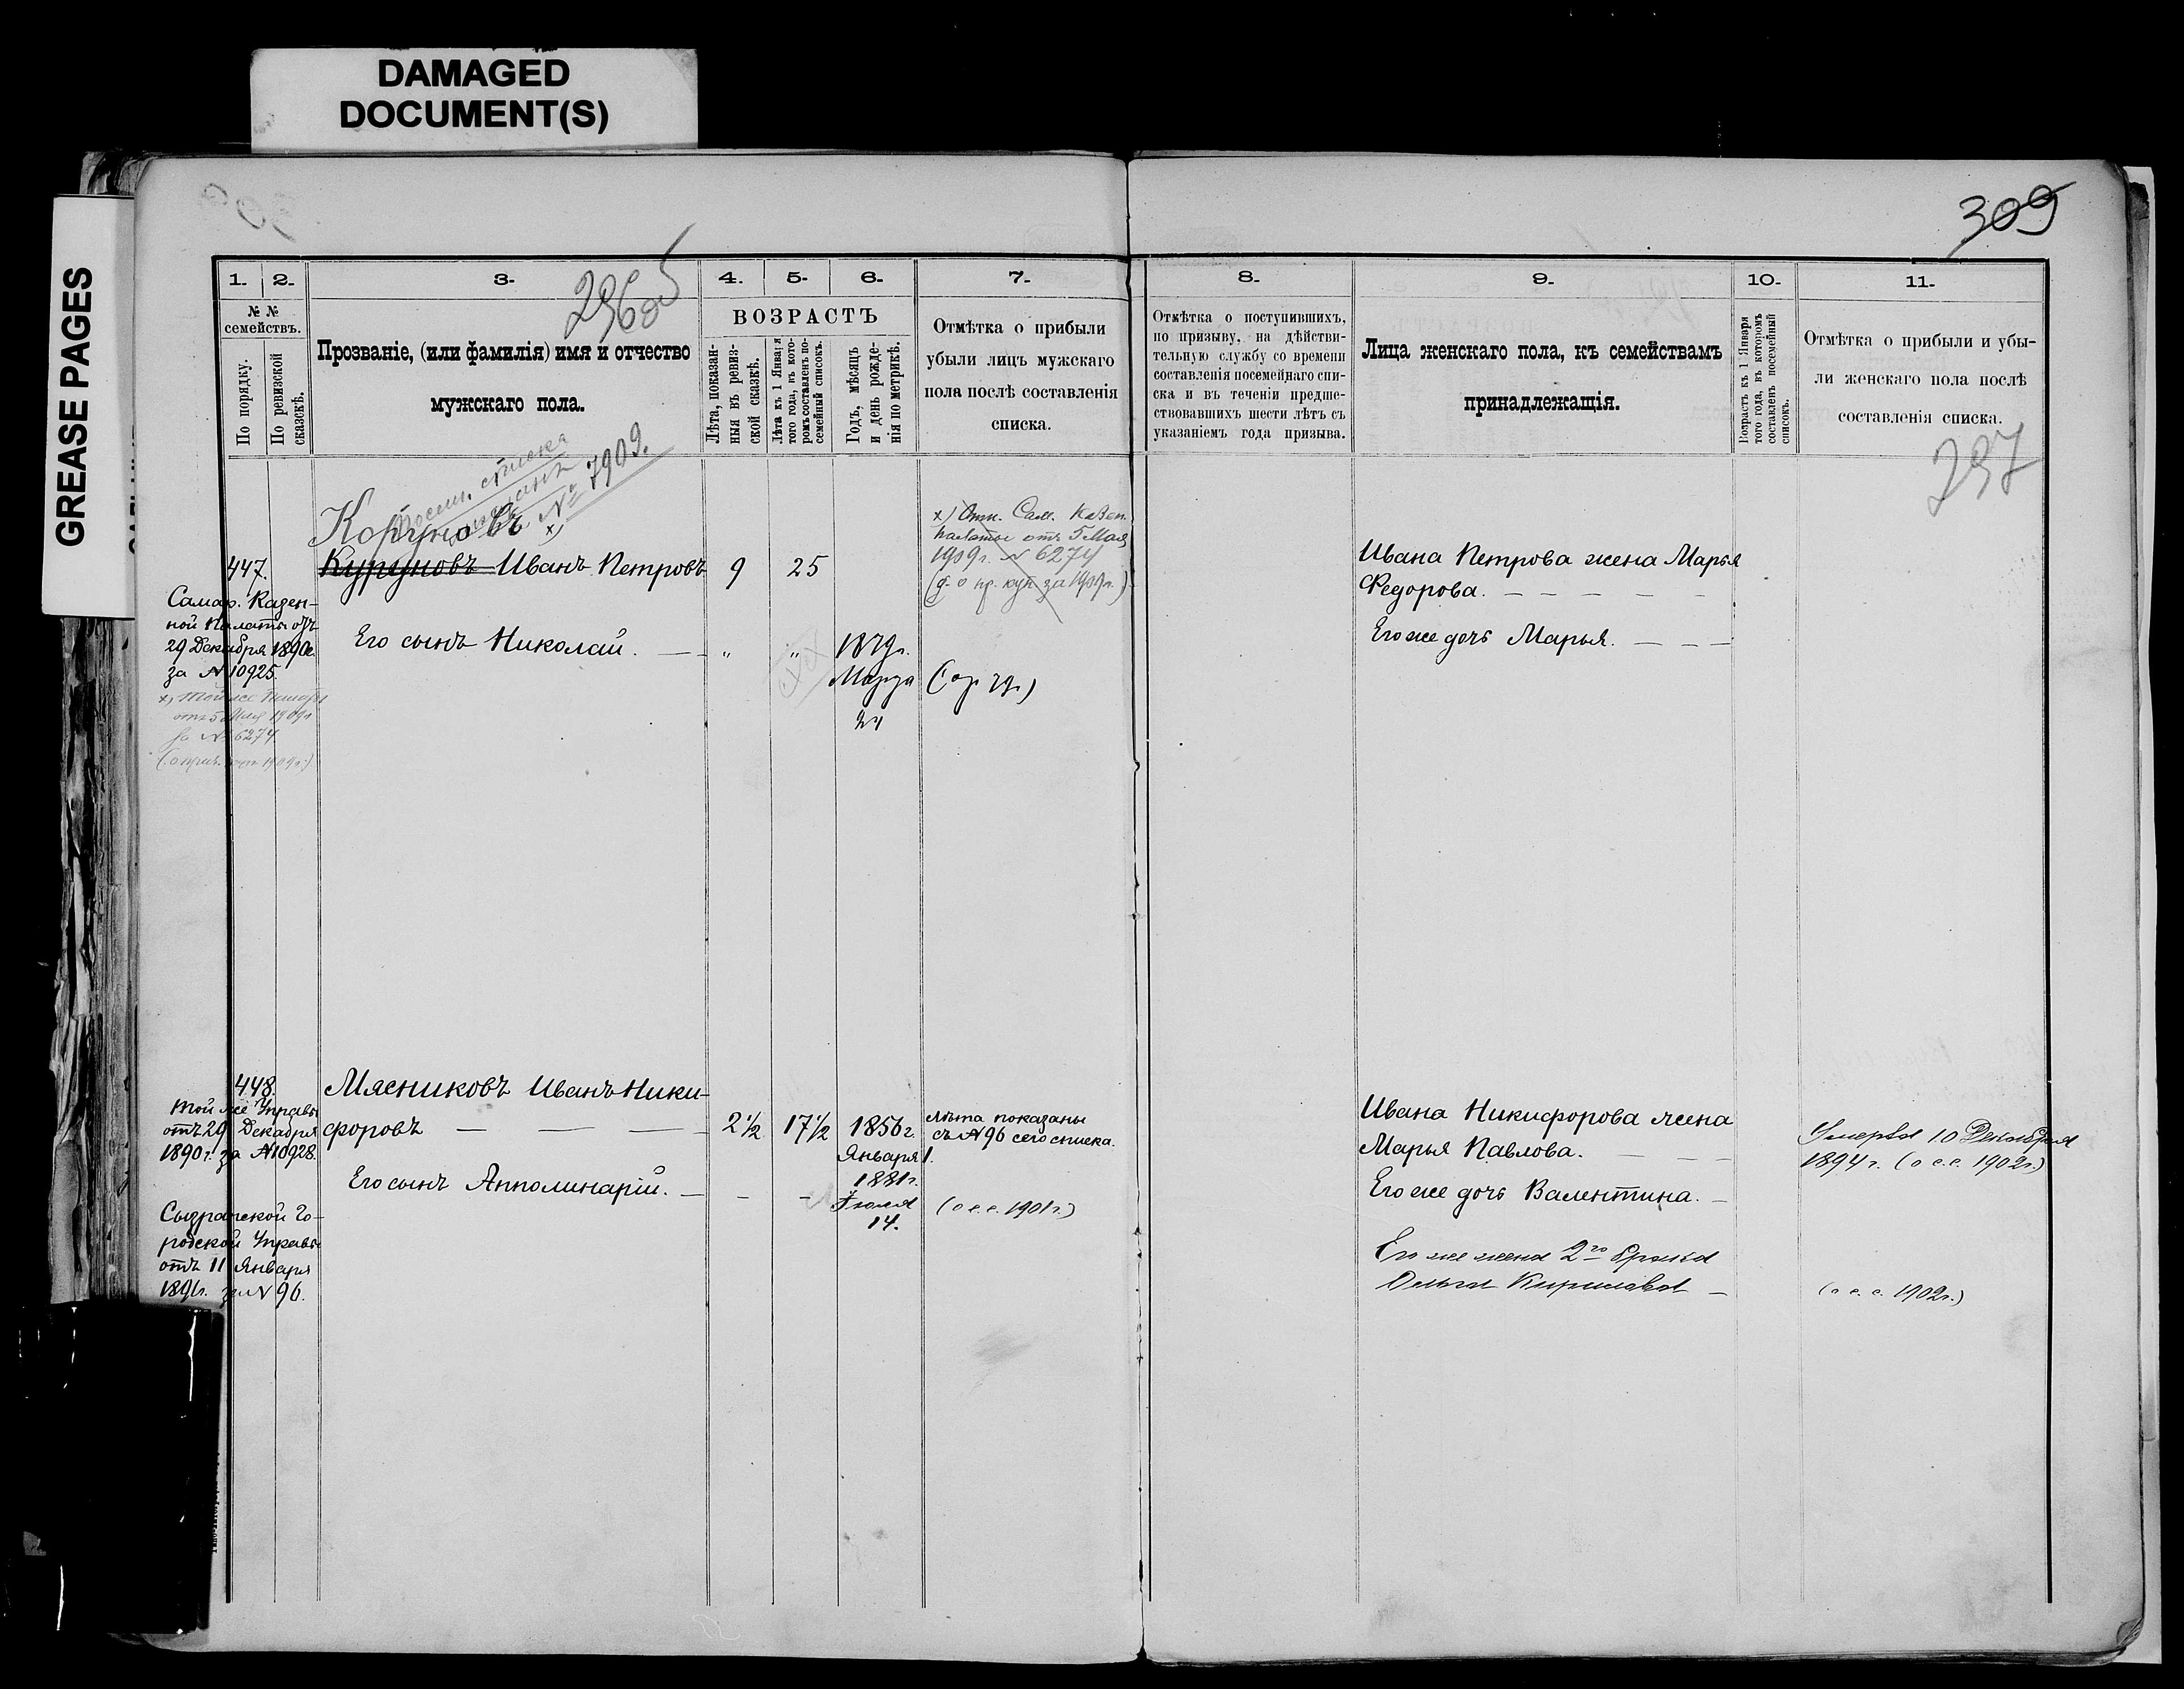 DAMAGED
DOCUMENT(S)
GREASE PAGES
309
1.
2.
3.
4.
5.
6.
7.
8.
9.
10.
11.
№ №
семействъ.
По порядку.
По ревизской
сказскѣ.
Прозваніе, (или фамилія) имя и отчество
мужскаго пола.
ВОЗРАСТЪ
Лѣта, показан-
ныя въ ревиз-
ской сказкѣ.
Лѣта къ 1 Января
того года, въ кото-
ромъ составленъ по-
семейный списокъ.
Годъ, мѣсяцъ
и день рожде-
нія по метрикѣ.
Отмѣтка о прибыли
убыли лицъ мужскаго
пола послѣ составленія
списка.
Отмѣтка о поступившихъ,
по призыву, на дѣйстви-
тельную службу со времени
составленія посемейнаго спи-
ска и въ теченіи предше-
ствовавшихъ шести лѣтъ съ
указаніемъ года призыва.
Лица женскаго пола, къ семействамъ
принадлежащія.
Возрастъ къ 1 Января
того года, въ которомъ
составленъ посемейный
списокъ.
Отмѣтка о прибыли и убы-
ли женскаго пола послѣ
составленія списка.
296об
297
списка
№ 7909.
447.
Самар. Казен-
ной Палаты отъ
29 Декабря 1890г.
за № 10925.
отъ 5 Мая 1909г
за № 6274
Коргуновъ x)
Кургуновъ Иванъ Петровъ
9
25
x) Отн. Сам. Казен.
Палаты отъ 5 Мая
1909г. № 6274
Ивана Петрова жена Марья
Федорова.
Его сынъ Николай.
"
"
1879г.
Марта
24
Его же дочь Марья.
448.
той же Управы
отъ 29 Декабря
1890г. за № 10928.
Мясниковъ Иванъ Ники-
форовъ
2½
17½
1856г.
Января 1.
Лѣта показаны
съ № 96 сего списка.
Ивана Никифорова жена
Марья Павлова.
Умерла 10 Декабря
1894г. (о с.с. 1902г.)
Его сынъ Апполинарій.
1881г.
Іюля
14.
(о с.с. 1901г.)
Его же дочь Валентина.
Сызранской Го-
родской Управы
отъ 11 Января
1891г. за № 96.
Его же жена 2го брака
Ольга Кирилова
(о с.с. 1902г.)